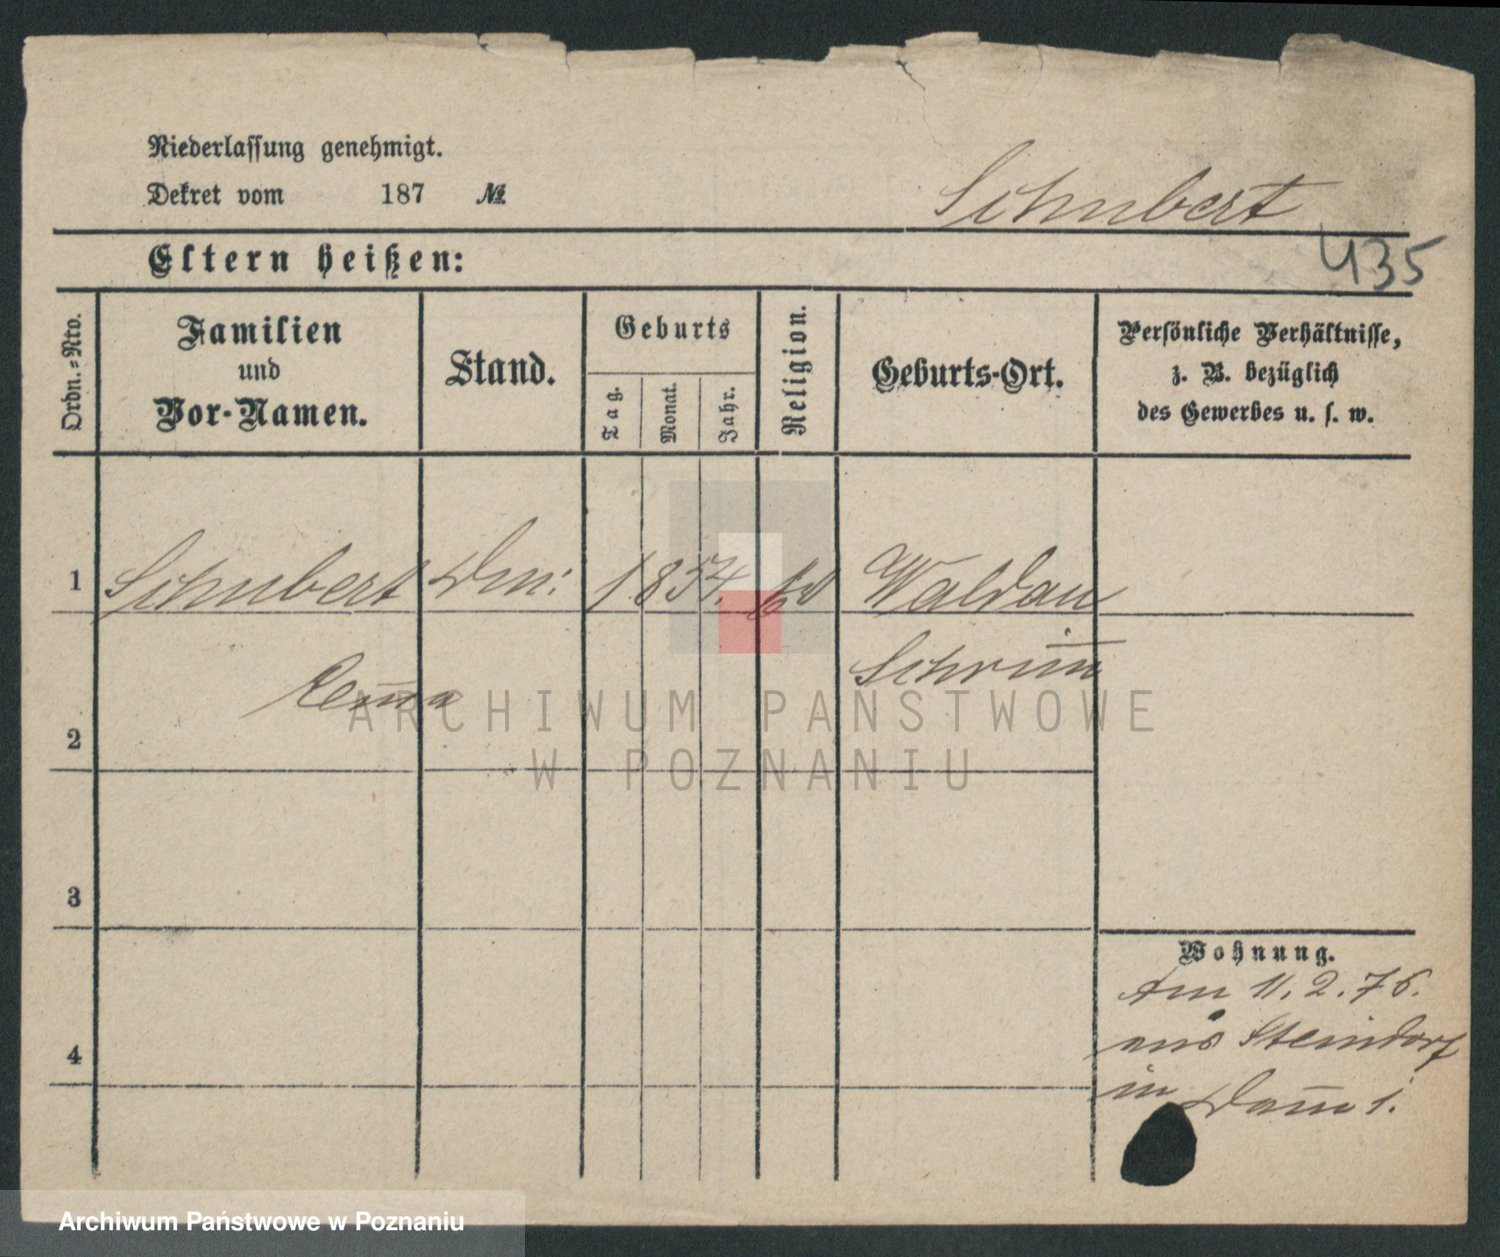 Niederlassung genehmigt.
Dekret vom 187 №
Schubert
435
Eltern heißen:
Ordn.-Nro.
Familien
und
Vor-Namen.
Stand.
Geburts
Tag.
Monat.
Jahr.
Religion.
Geburts-Ort.
Persönliche Verhältnisse,
z. B. bezüglich
des Gewerbes u. s. w.
1 Schubert 1854. Waldau
Schrim̅
2
3
4
Wohnung.
Am 11. 2. 76.
aus Steindorf
in Dom̅ 1.
ARCHIWUM PAŃSTWOWE
W POZNANIU
Archiwum Państwowe w Poznaniu